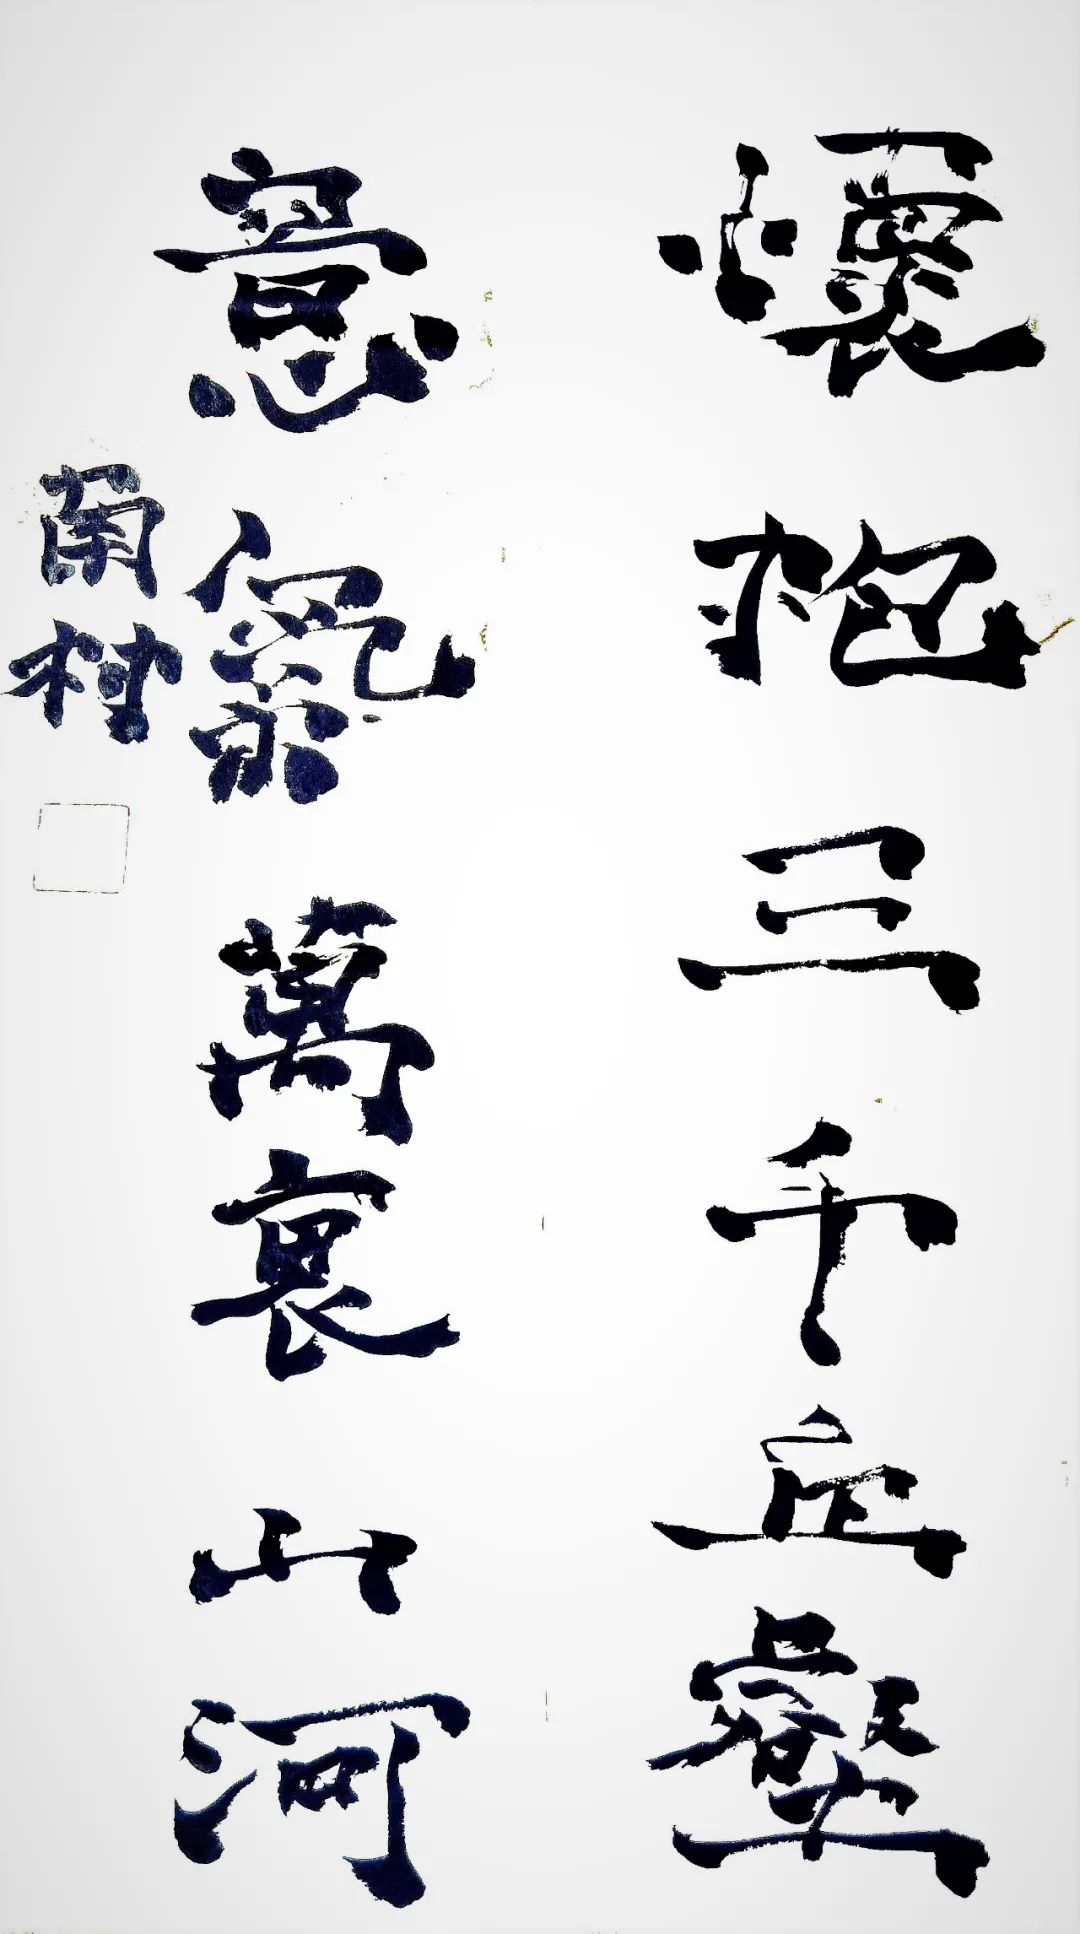 懷抱三千丘壑
意氣萬裏山河
南村